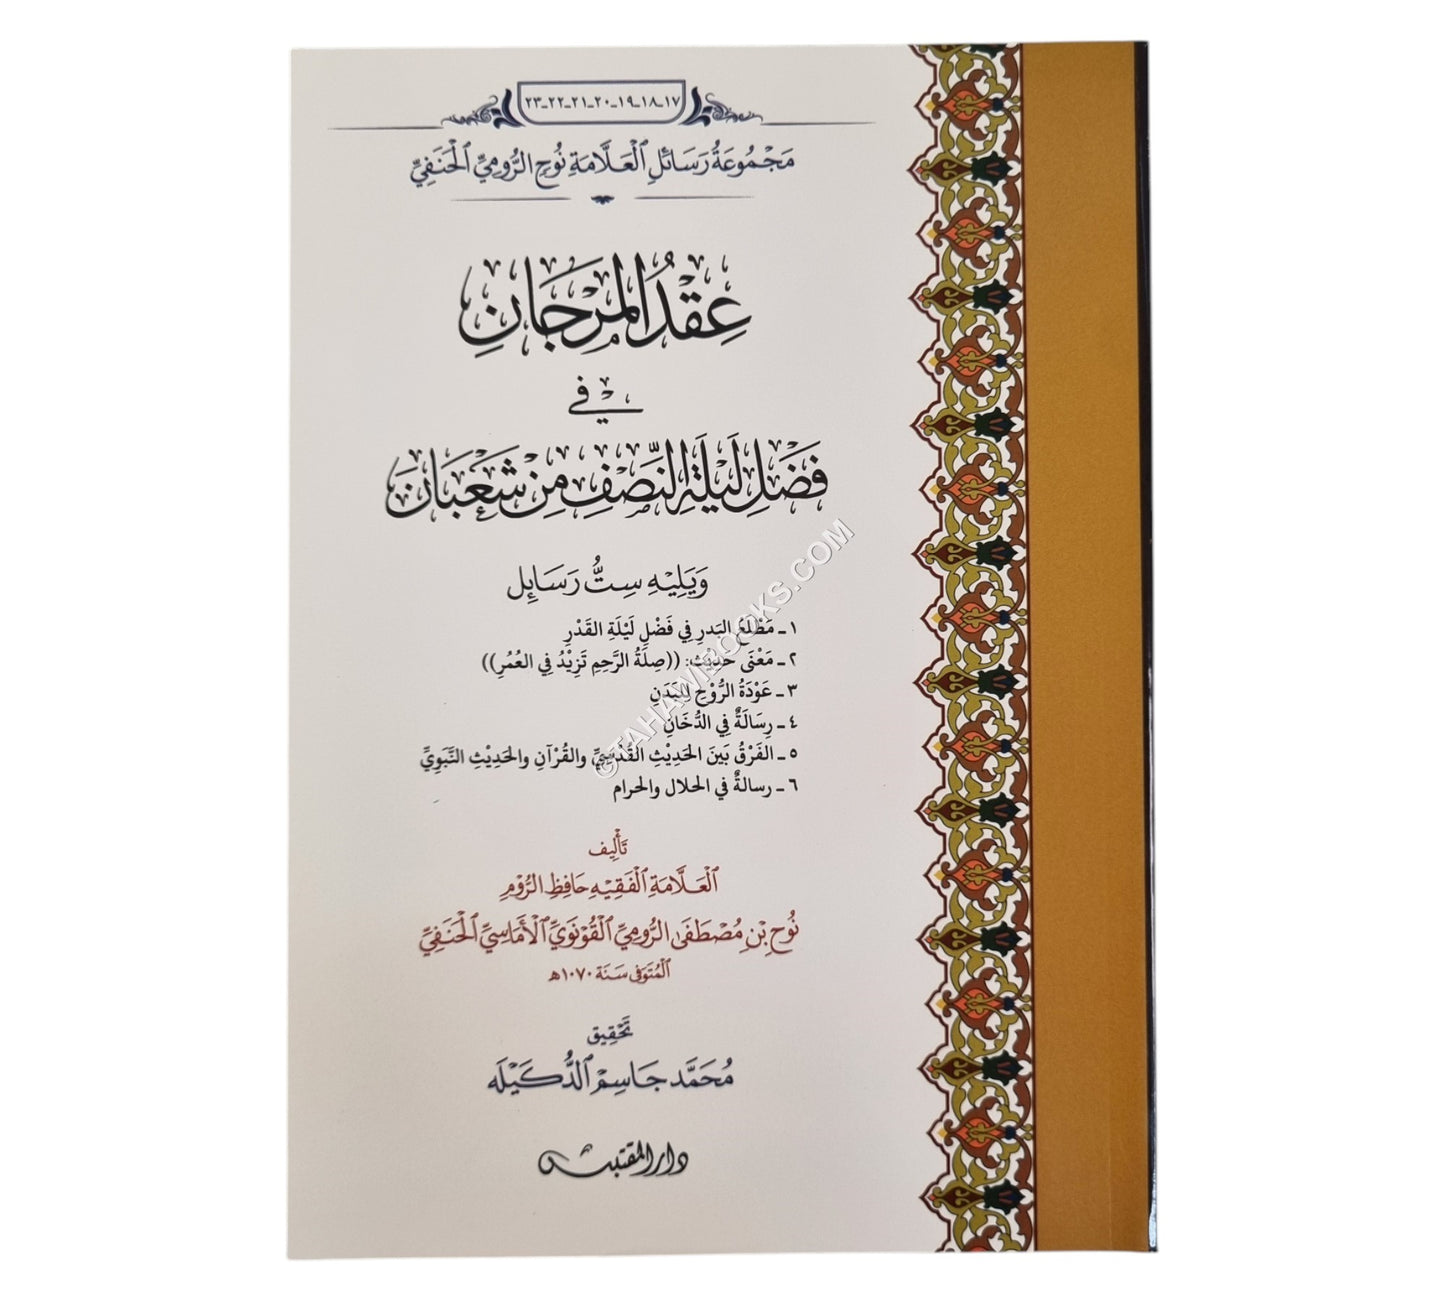 ١٧ـ١٨ـ١٩ـ٢٠ـ٢١ـ٢٢ـ٢٣
مَجْمُوعَةُ رَسَائِلِ الْعَلَّامَةِ نُوحِ الرُّومِيِّ الْحَنَفِيِّ
عِقْدُ المَرْجَانِ
فِي
فَضْلِ لَيْلَةِ النِّصْفِ مِنْ شَعْبَانَ
وَيَلِيْهِ سِتُّ رَسَائِل
١ ـ مَطْلَعُ البَدرِ فِي فَضْلِ لَيْلَةِ القَدْرِ
٢ ـ مَعْنَى حَدِيْثِ: ((صِلَةُ الرَّحِمِ تَزِيْدُ فِي العُمُرِ))
٣ ـ عَوْدَةُ الرُّوْحِ لِلبَدَنِ
٤ ـ رِسَالَةٌ فِي الدُّخَانِ
٥ ـ الفَرْقُ بَينَ الحَدِيْثِ القُدْسِيِّ والقُرْآنِ والحَدِيْثِ النَّبَوِيِّ
٦ ـ رسالةٌ في الحلال والحرام
تَأْلِيف
الْعَلَّامَةِ الْفَقِيْهِ حَافِظِ الرُّوْمِ
نُوْحِ بْنِ مُصْطَفَى الرُّومِيِّ الْقُوْنَوِيِّ الْأَمَاسِيِّ الْحَنَفِيِّ
الْمُتَوَفَى سَنَة ١٠٧٠هـ
تَحْقِيق
مُحَمَّد جَاسِم الدُّكَيْلَه
دار المقتبس
©TAHAWIBOOKS.COM